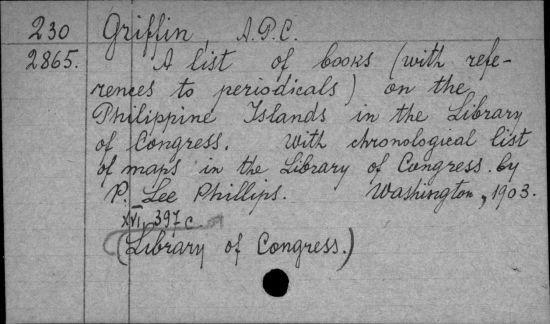 230 Griffin, A.P.C.
2865. A list of books (with refe-
rences to periodicals) on the
Philippine Islands in the Library
of Congress. With chronological list
of maps in the Library of Congress by
P. Lee Phillips. Washington, 1903.
XVI, 397 c.
(Library of Congress.)